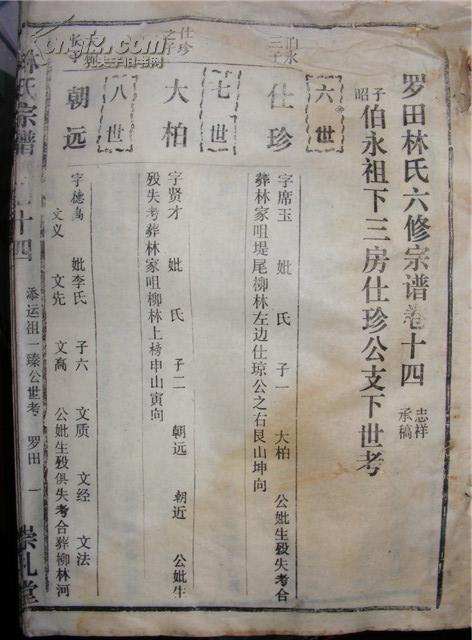 罗田林氏六修宗谱卷十四
志祥
承稿
子昭
伯永祖下三房仕珍公支下世考
六世
伯永三子
仕珍
字席玉 妣 氏 子一 大柏 公妣生殁失考合
葬林家咀堤尾柳林左边仕琼公之右艮山坤向
七世
仕珍之子
大柏
字贤才 妣 氏 子二 朝远 朝近 公妣生
殁失考葬林家咀柳林上榜申山寅向
八世
朝远
字德高 妣李氏 子六 文质 文经 文法
文义 文先 文高 公妣生殁俱失考合葬柳林河
林氏宗谱
十四
添运祖一臻公世考 罗田 一
崇礼堂
孔夫子旧书网